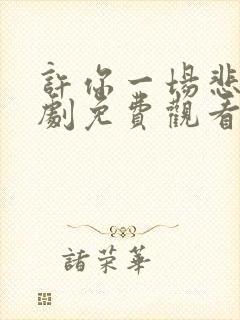 許你一場悲
劇免費觀看
諸榮華